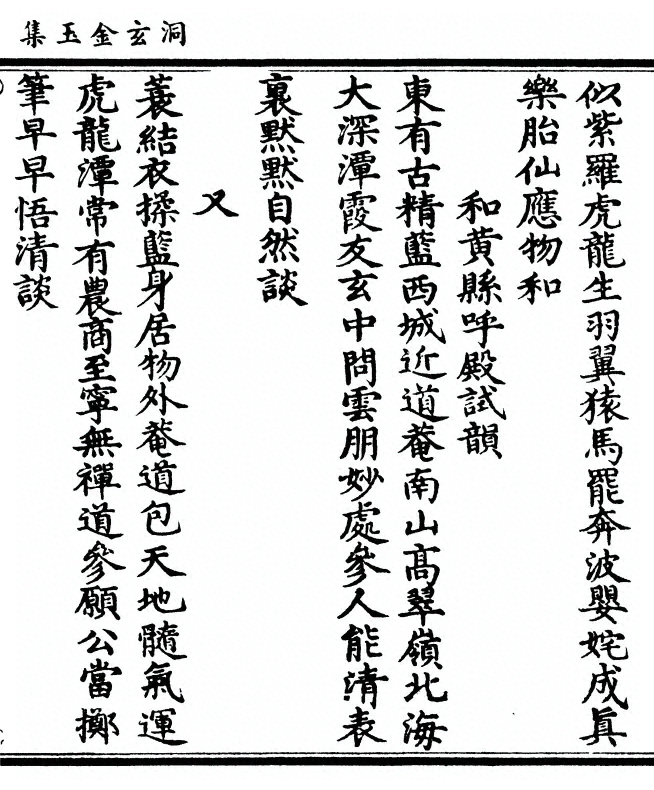 洞玄金玉集
似紫羅虎龍生羽翼猿馬罷奔波嬰姹成眞
樂胎仙應物和
和黃縣呼殿試韻
東有古精藍西城近道菴南山高翠嶺北海
大深潭霞友玄中問雲朋妙處參人能清表
裏默默自然談
又
蓑結衣搡藍身居物外菴道包天地髓氣運
虎龍潭常有農商至寧無禪道參願公當擲
筆早早悟清談